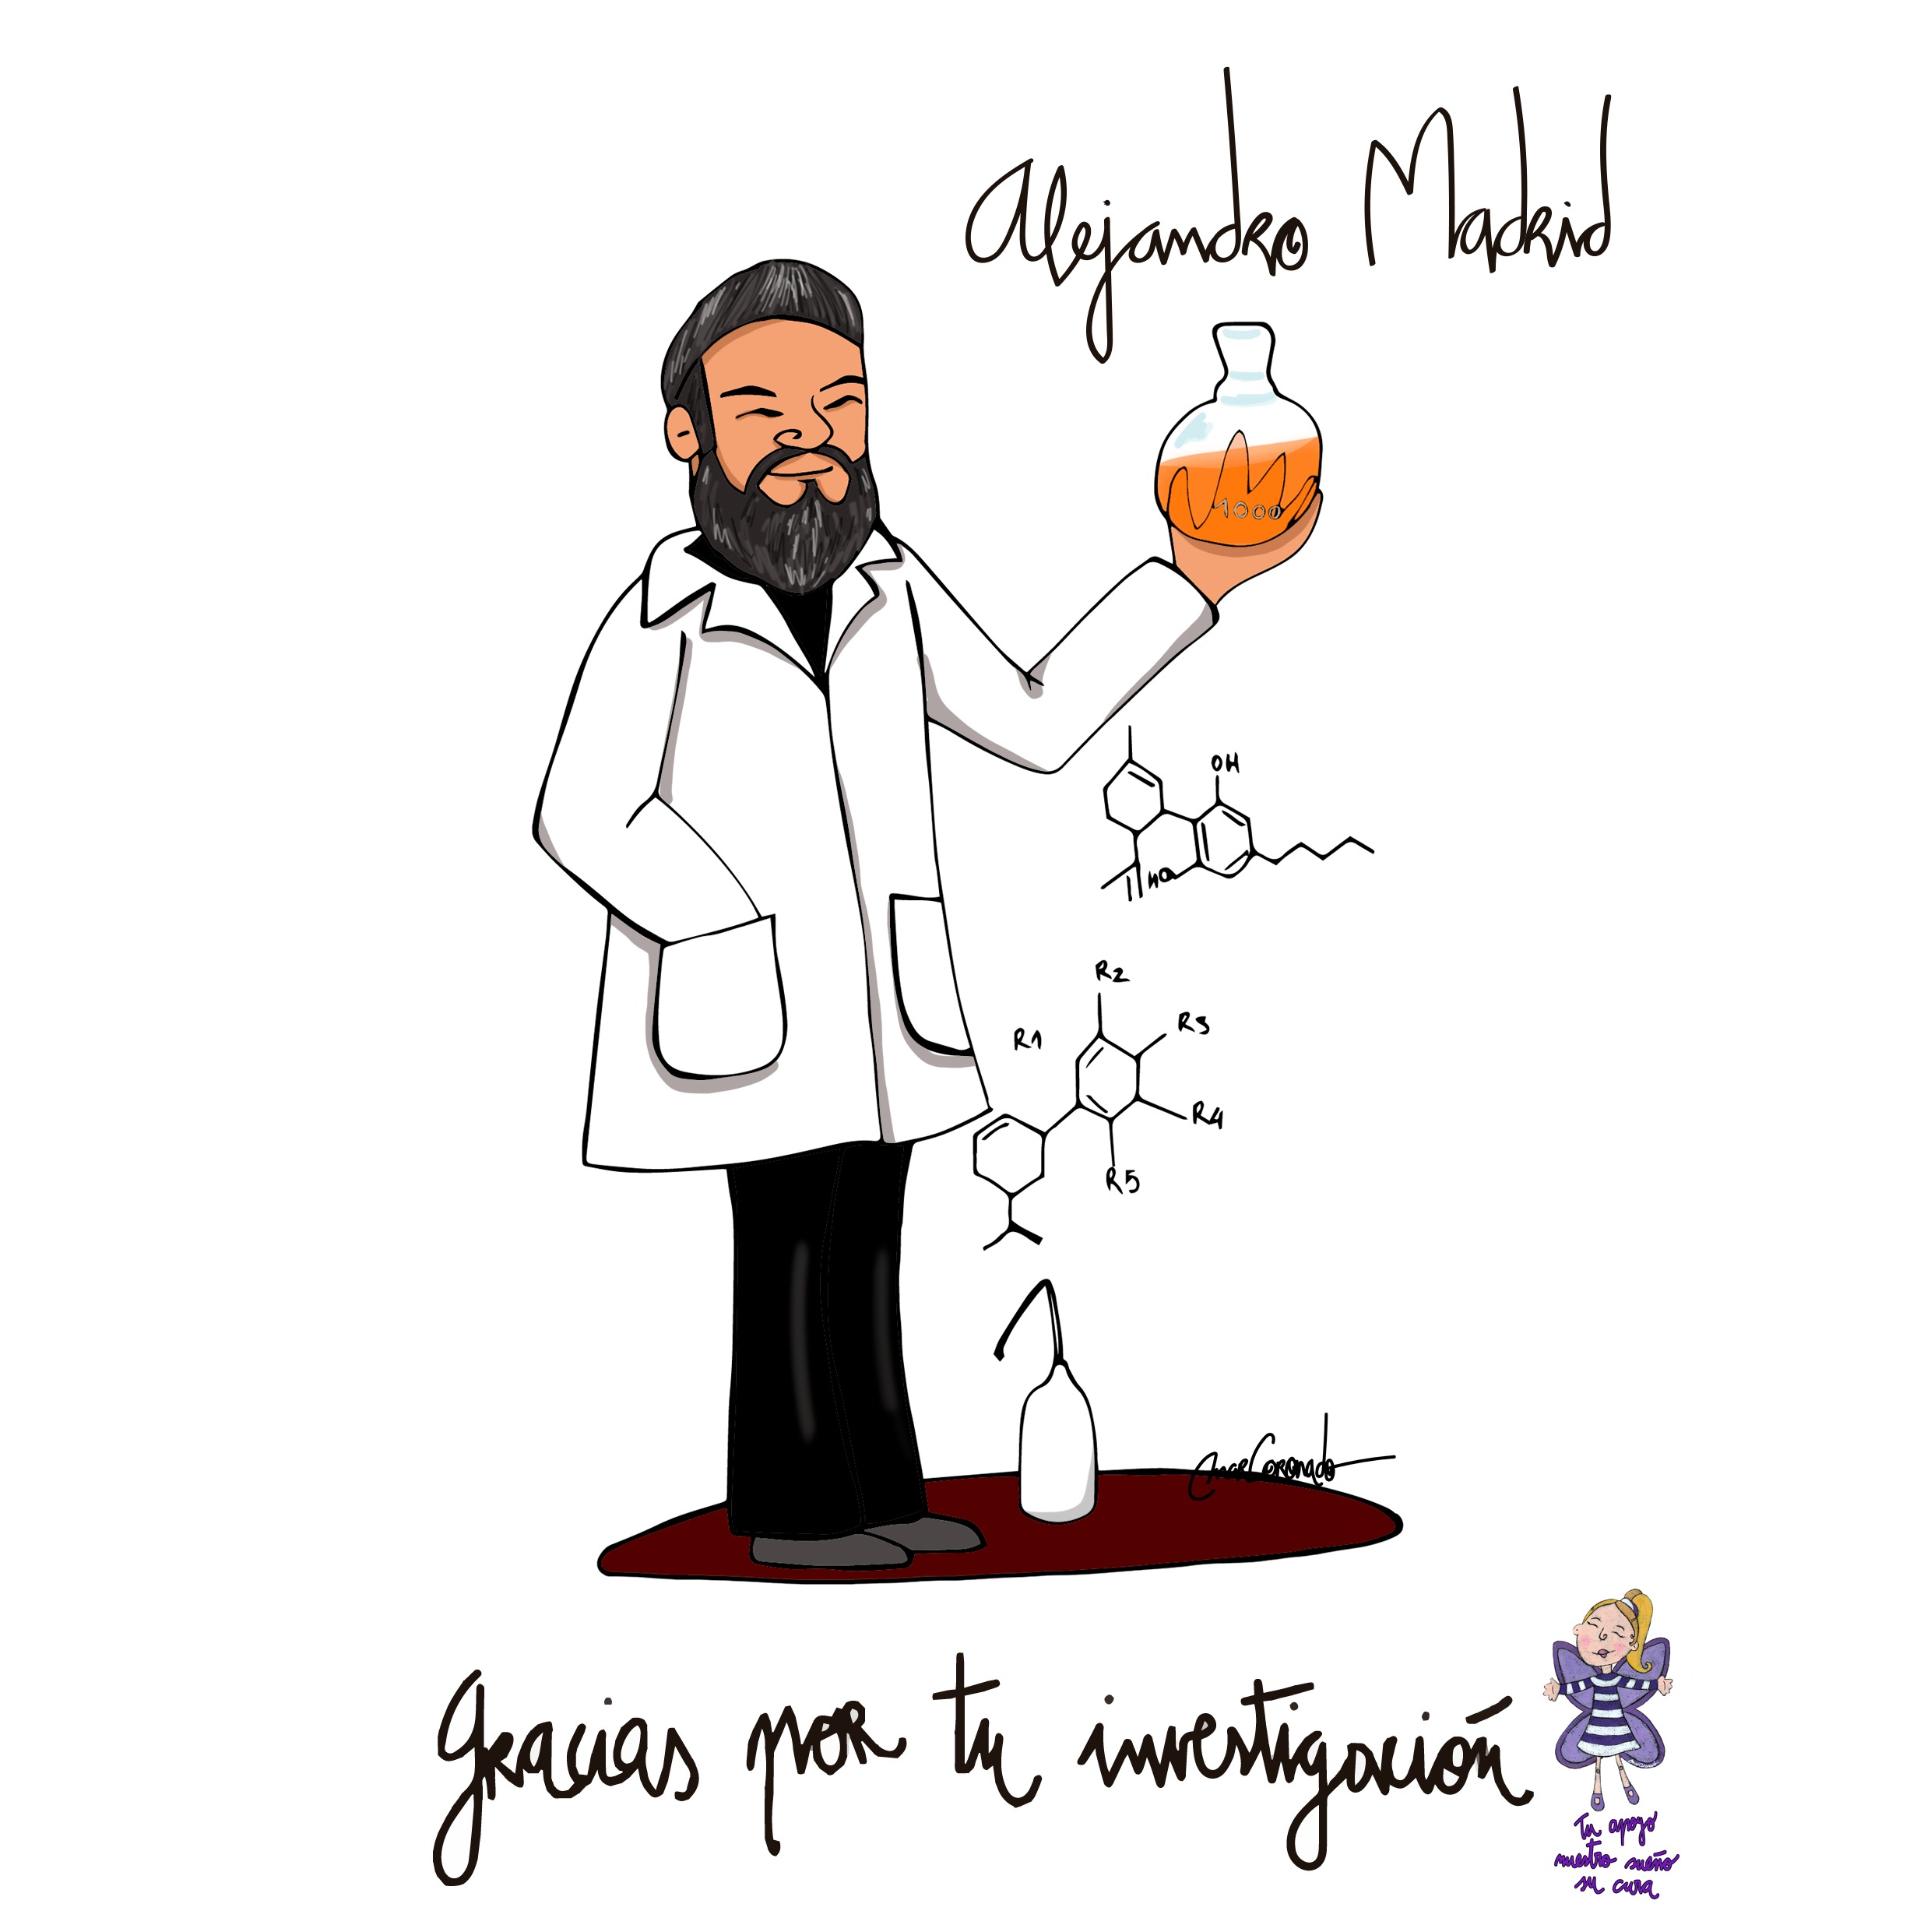 Alejandro Madrid
1000
OH
HO
R2
R1
R3
R4
R5
OmarCoronado
Gracias por tu investigación
Tu apoyo
nuestro sueño
su cura